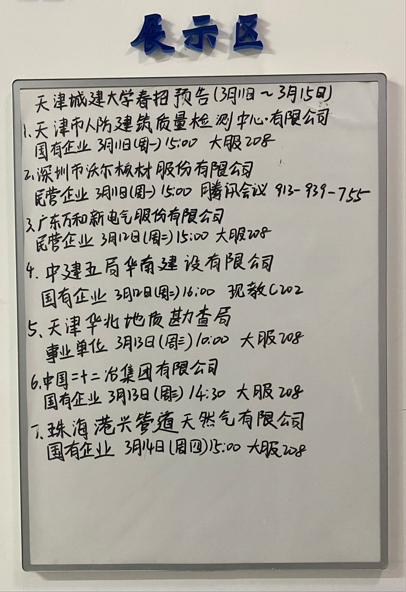 展示区
天津城建大学春招预告(3月11日~3月15日)
1.天津市人防建筑质量检测中心有限公司
国有企业 3月11日(周一)15:00 大服208
2.深圳市沃尔核材股份有限公司
民营企业 3月11日(周一)15:00 腾讯会议 913-939-755
3.广东万和新电气股份有限公司
民营企业 3月12日(周二)15:00 大服208
4.中建五局华南建设有限公司
国有企业 3月12日(周二)16:00 现教C202
5、天津华北地质勘查局
事业单位 3月13日(周三)10:00 大服208
6.中国二十二冶集团有限公司
国有企业 3月13日(周三)14:30 大服208
7.珠海港兴管道天然气有限公司
国有企业 3月14日(周四)15:00 大服208